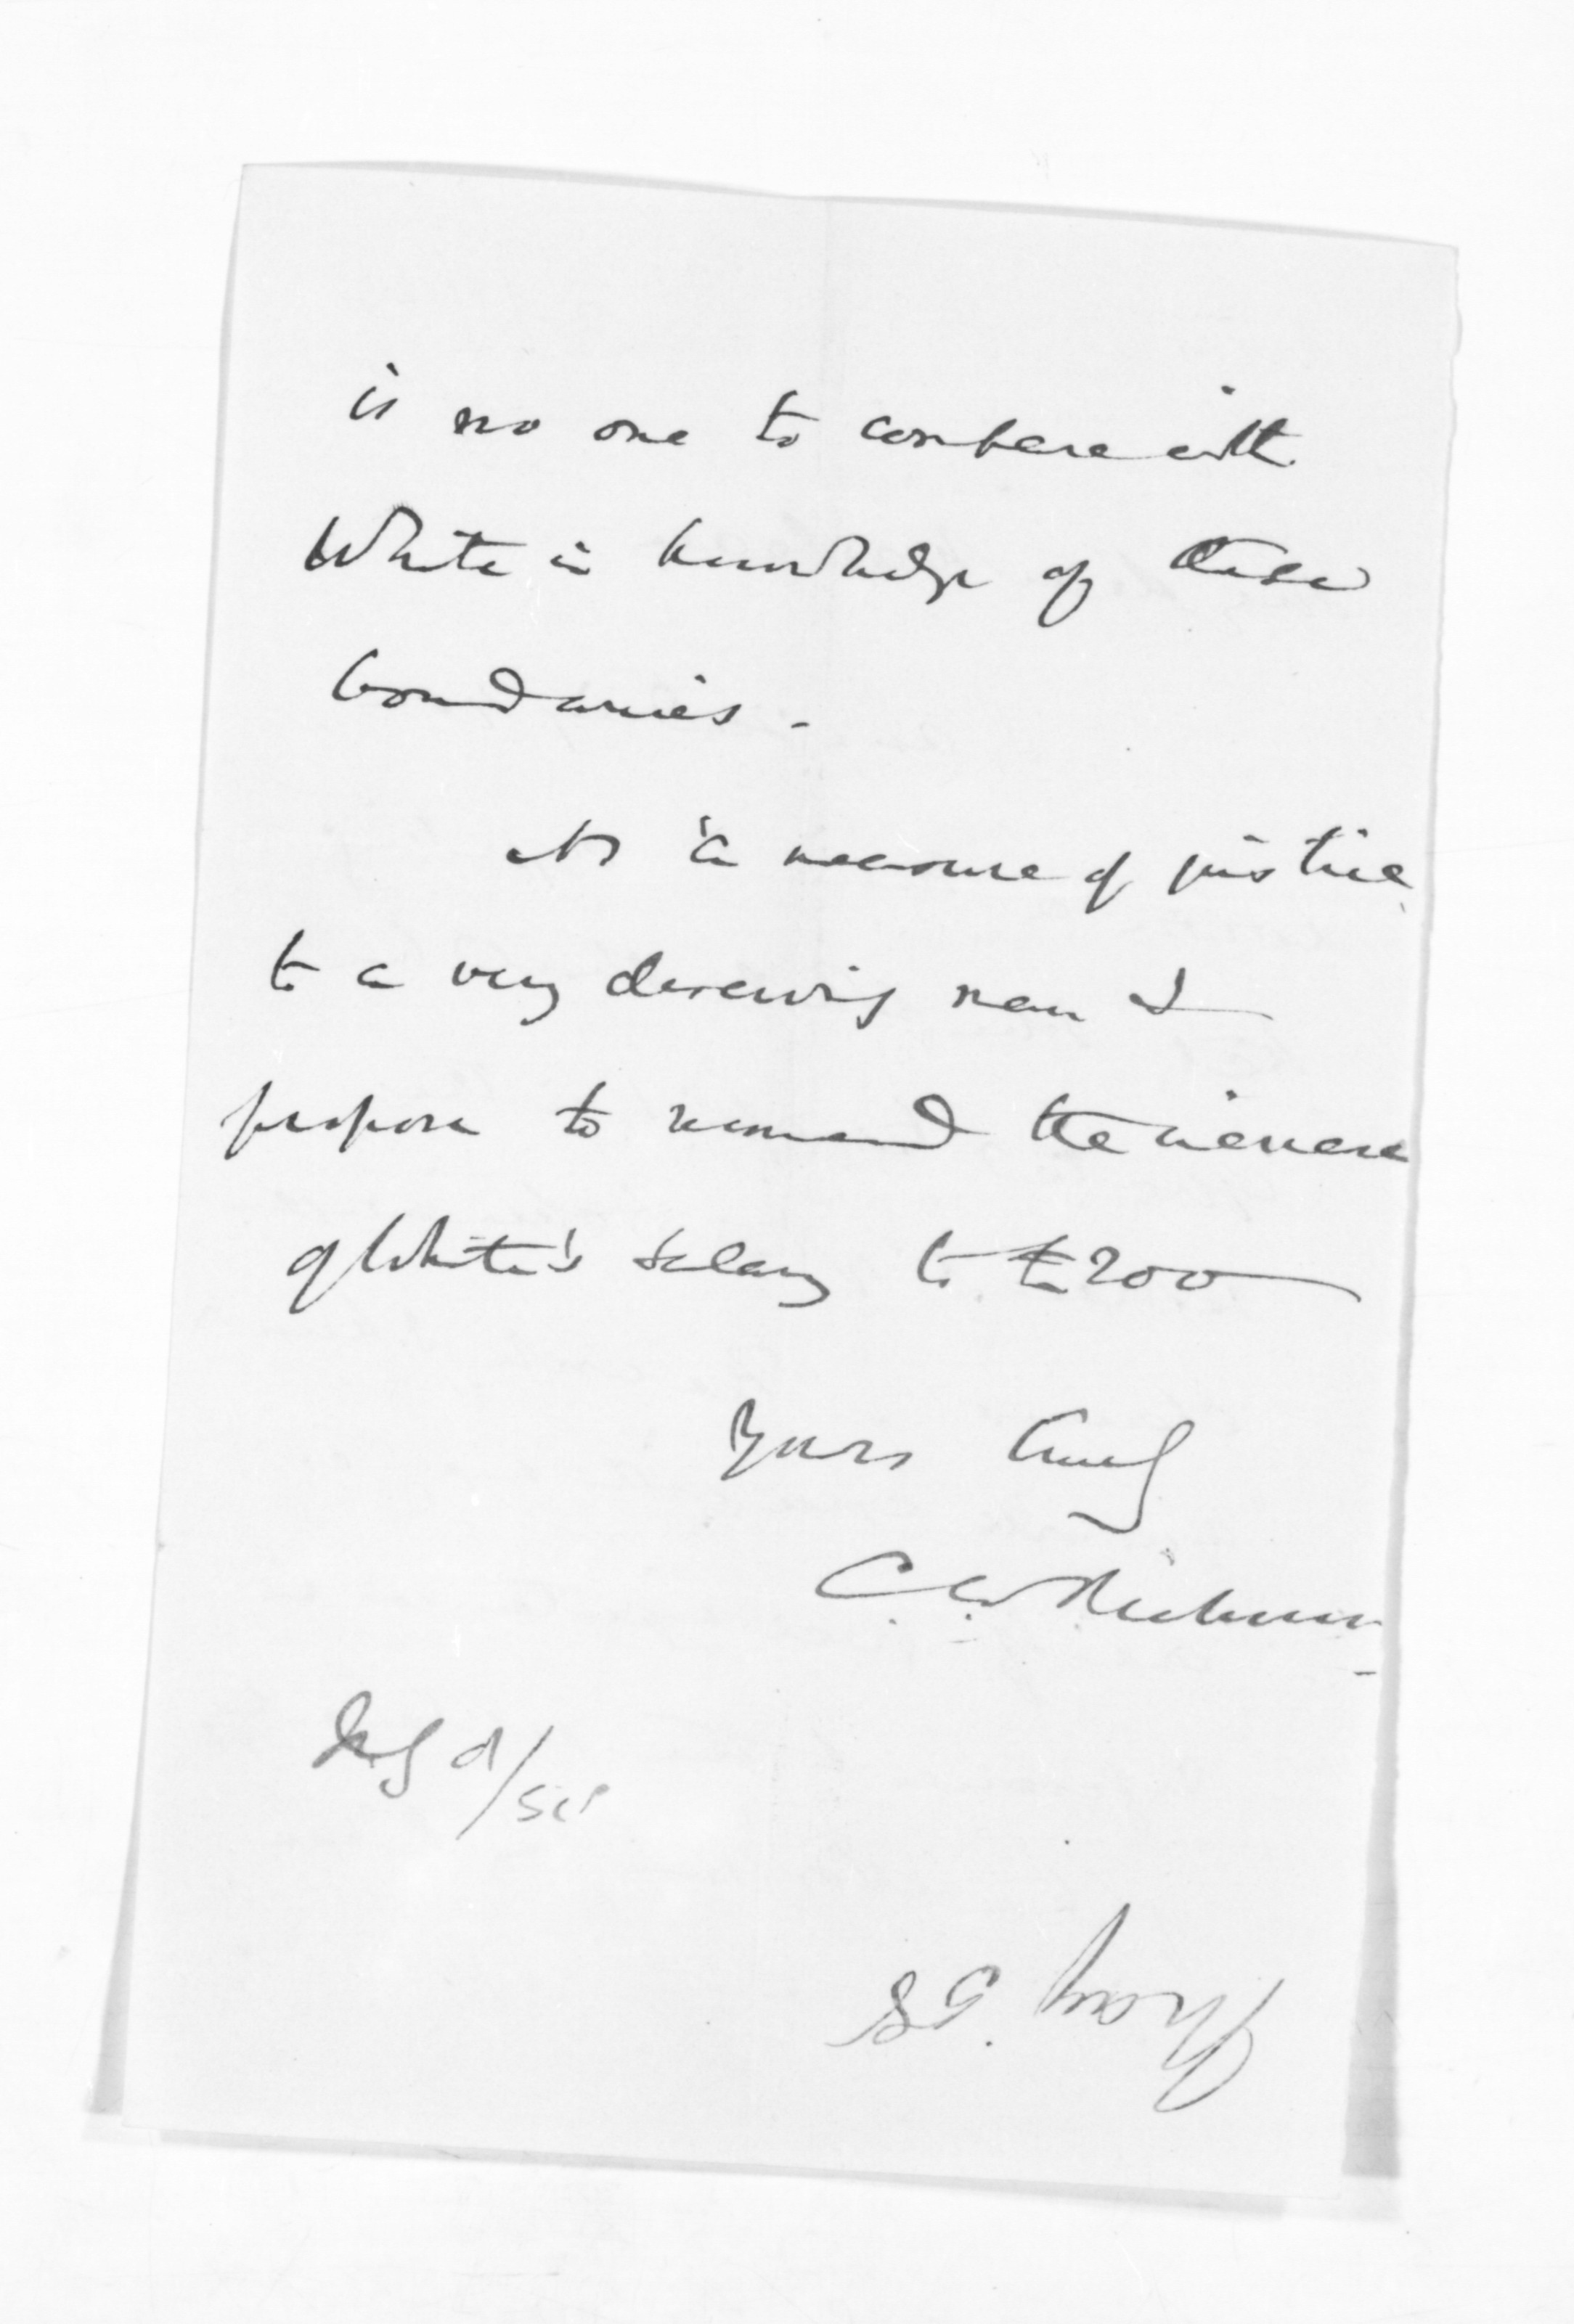 is no one to compare with
White in knowledge of these
boundaries.
As a measure of justice
to a very deserving man I
propose to recommend the increase
of White's salary to £200
Yours truly
C. W. Richmond